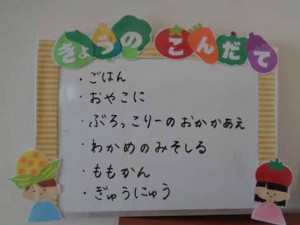 きょうのこんだて
・ごはん
・おやこに
・ぶろっこりーのおかかあえ
・わかめのみそしる
・ももかん
・ぎゅうにゅう